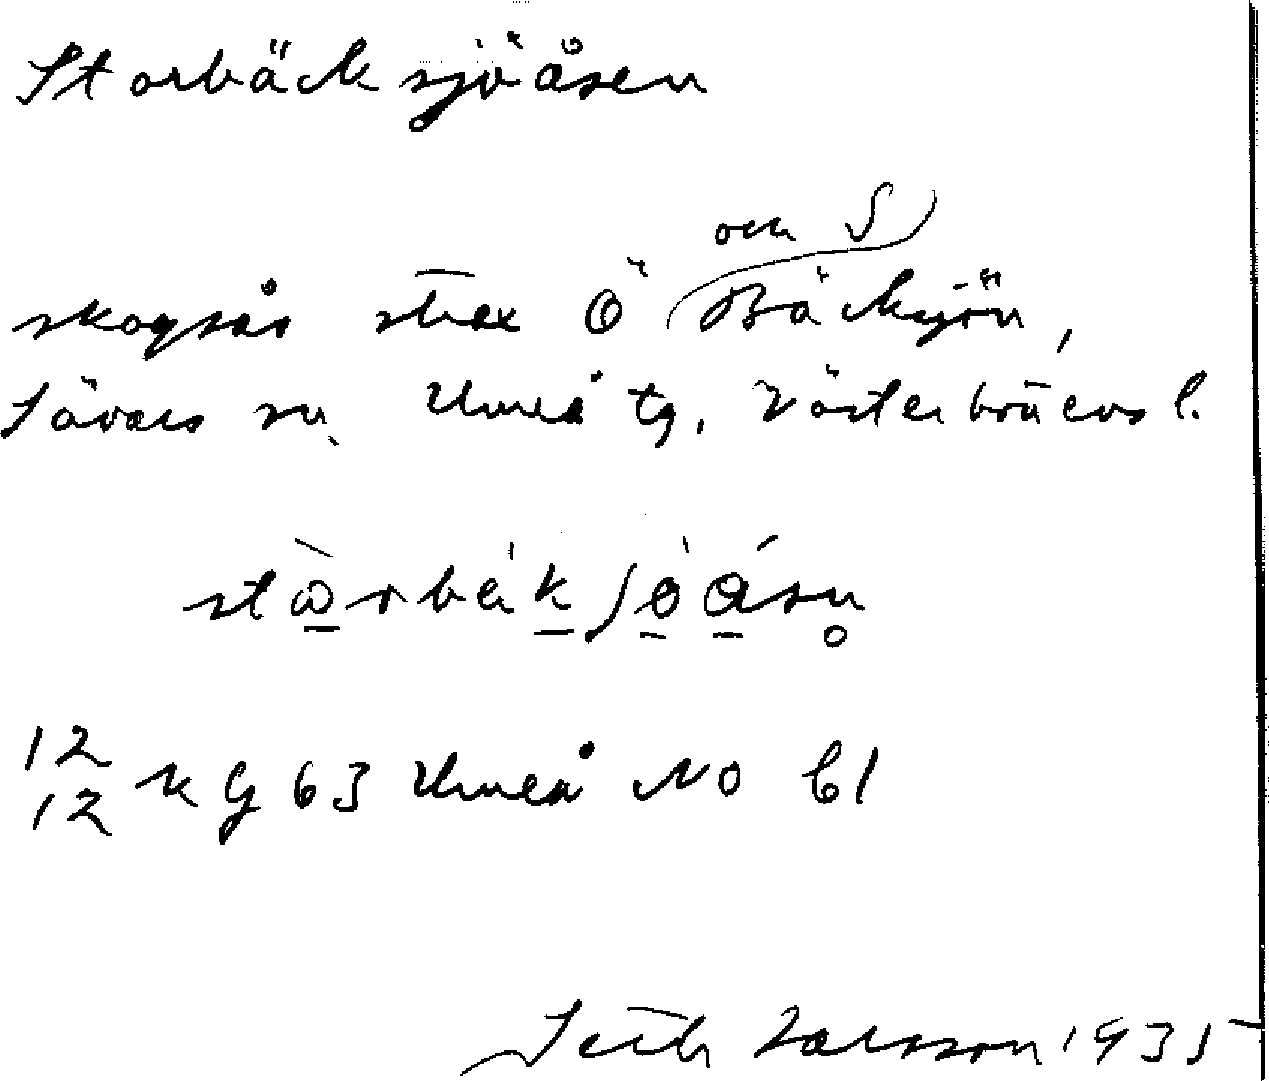 Storbäcksjöåsen
och S
skogsås strax Ö Bäcksjön,
Sävars sn, Umeå tg, Västerbottens l.
12 K G 63 Umeå NO b1
12
Larsson 1935